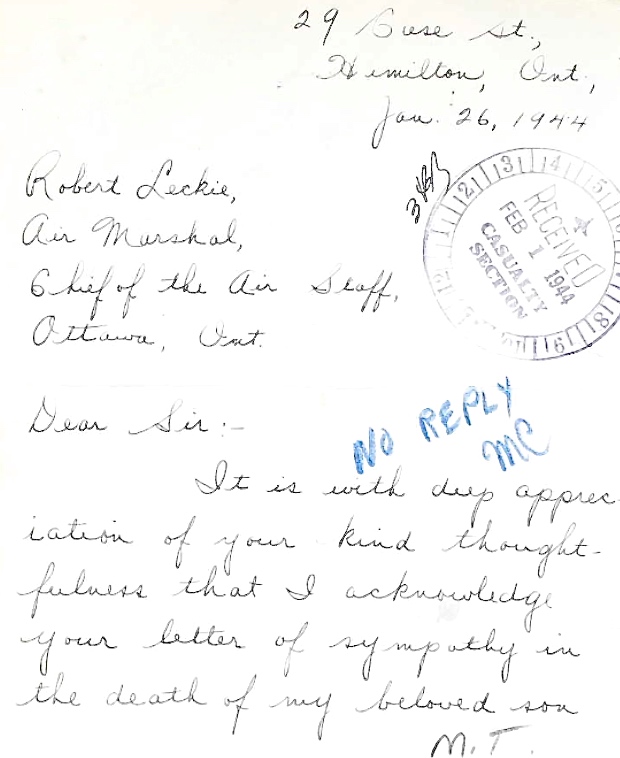 29 Case St.,
Hamilton, Ont.,
Jan. 26, 1944
Robert Leckie,
Air Marshal,
Chief of the Air Staff,
Ottawa, Ont.
RECEIVED
FEB 1 1944
CASUALTY
SECTION
Dear Sir:-
NO REPLY
MC
It is with deep apprec-
iation of your kind thought-
fulness that I acknowledge
your letter of sympathy in
the death of my beloved son
M.T.